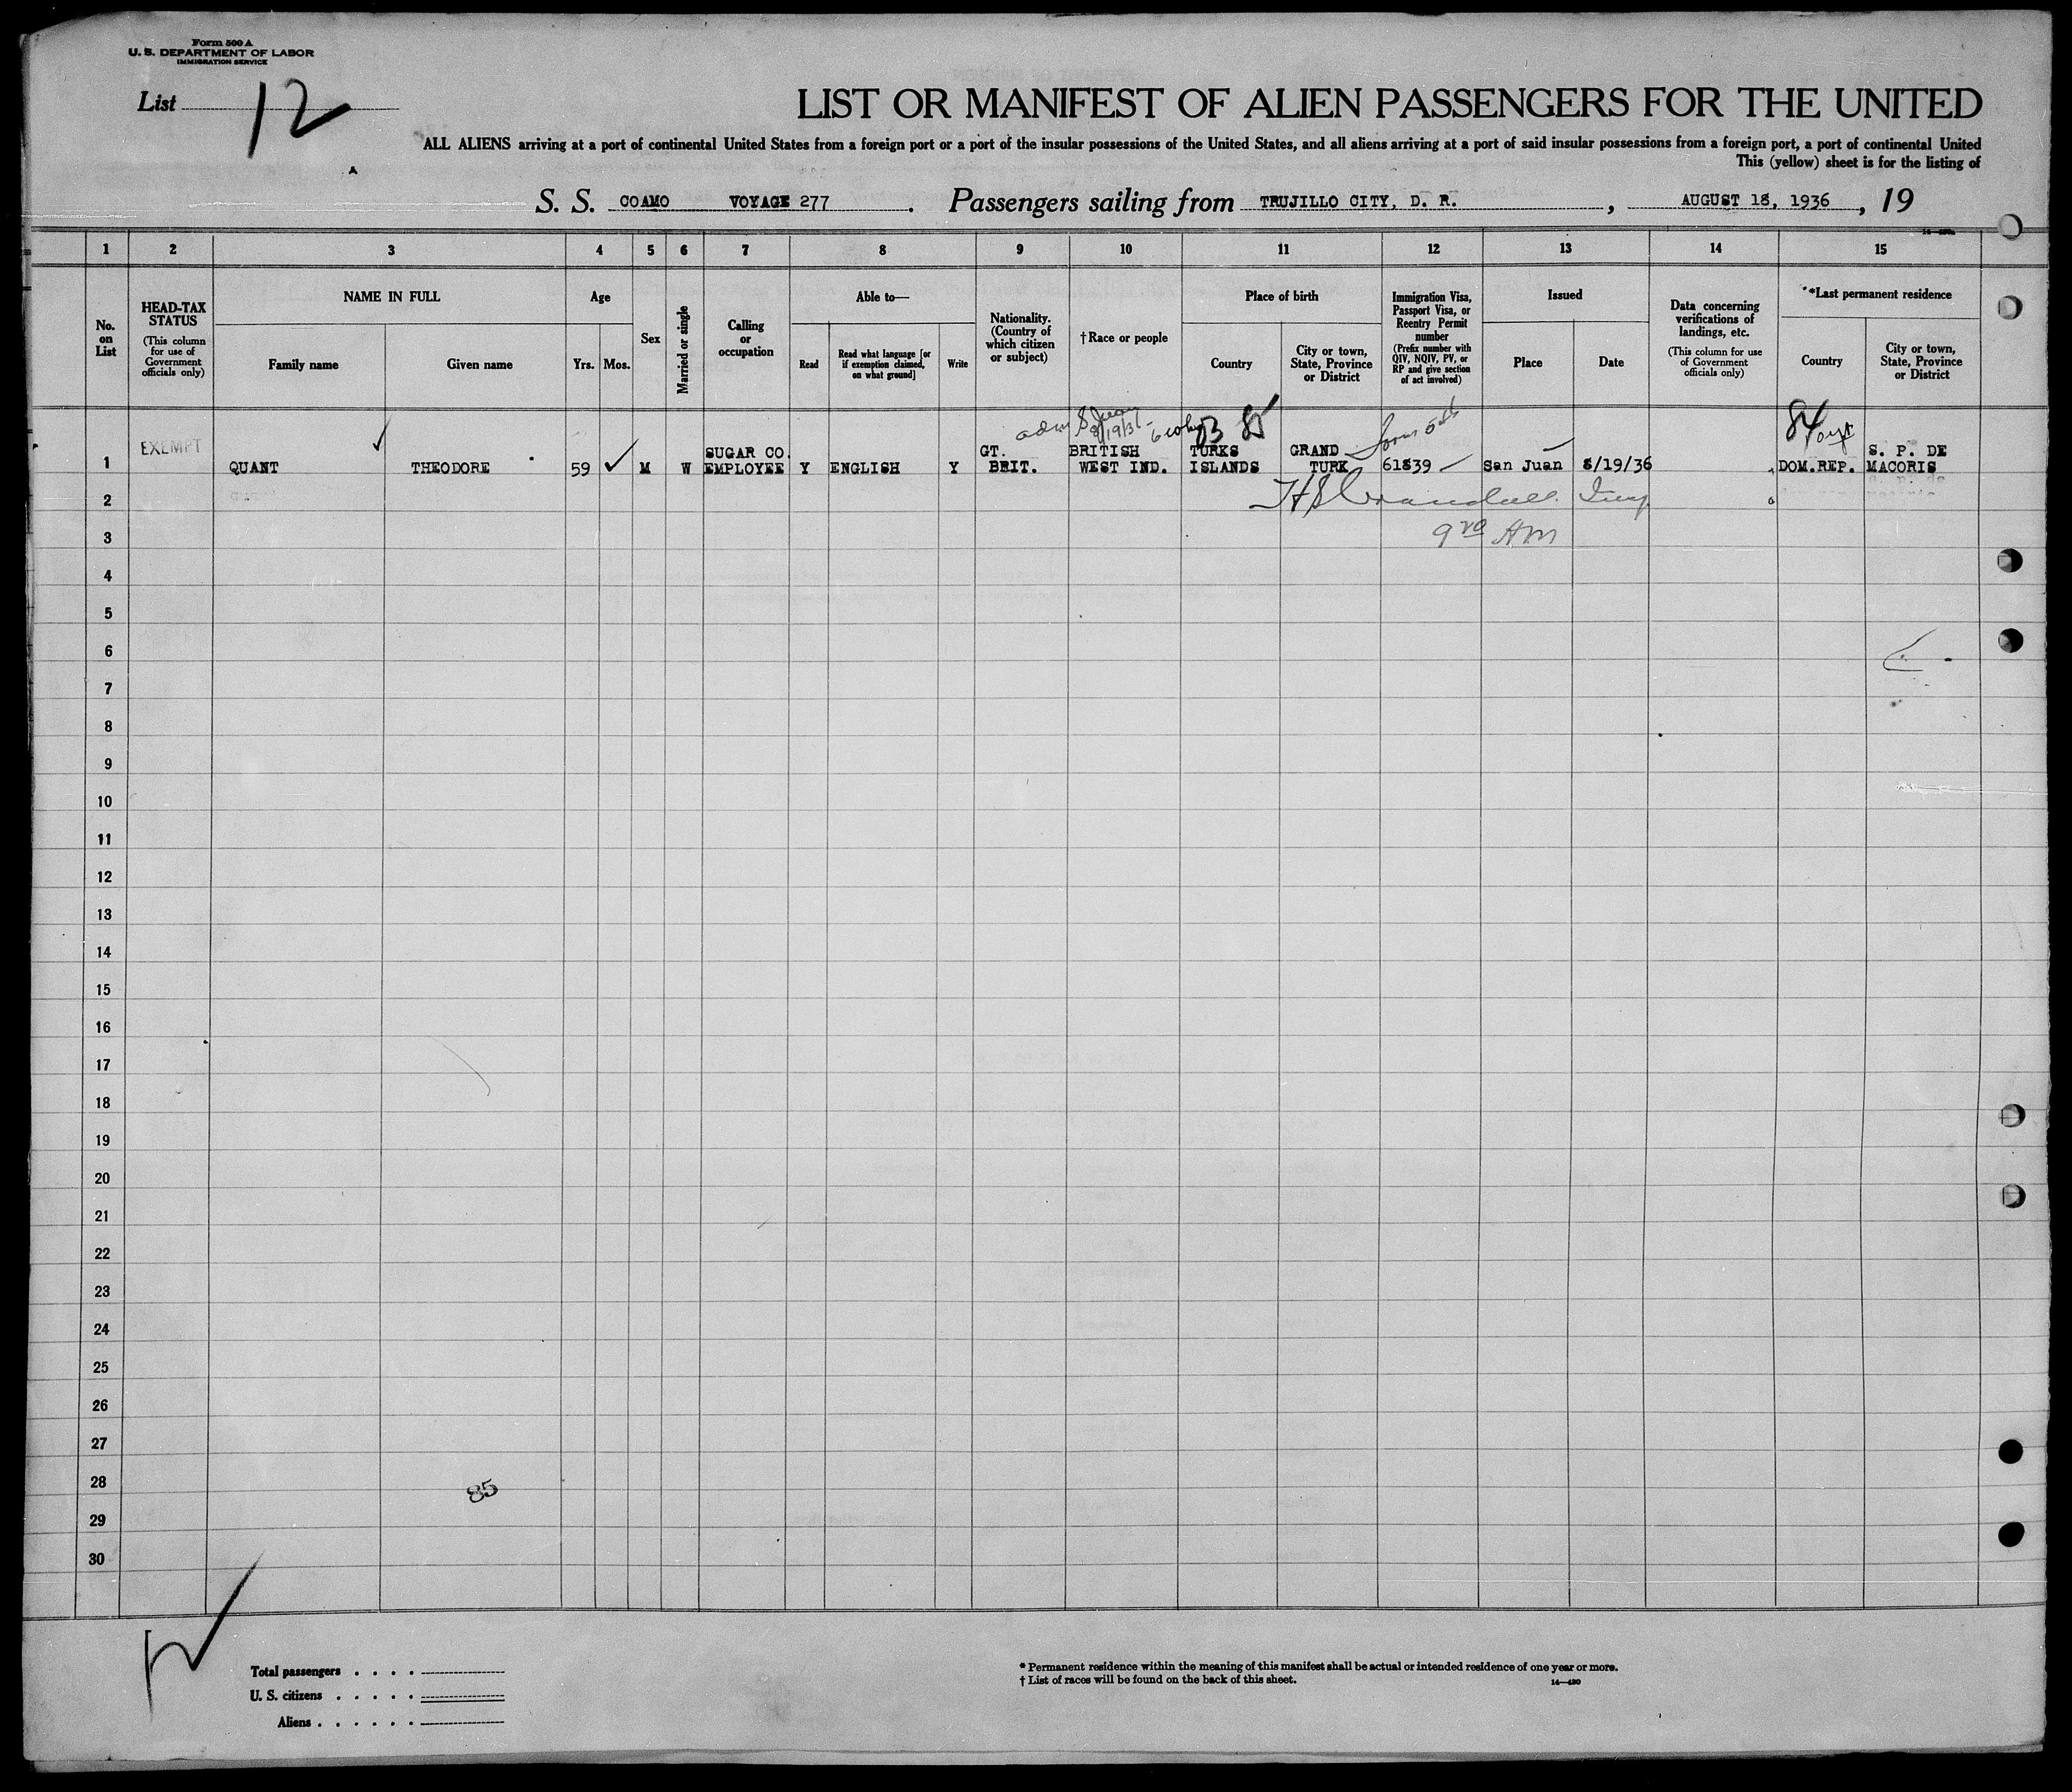 Form 500 A
U. S. DEPARTMENT OF LABOR
IMMIGRATION SERVICE
List 12
LIST OR MANIFEST OF ALIEN PASSENGERS FOR THE UNITED
ALL ALIENS arriving at a port of continental United States from a foreign port or a port of the insular possessions of the United States, and all aliens arriving at a port of said insular possessions from a foreign port, a port of continental United
This (yellow) sheet is for the listing of
A
S. S. COAMO VOYAGE 277. Passengers sailing from TRUJILLO CITY, D. R., AUGUST 18, 1936, 19
1 2 3 4 5 6 7 8 9 10 11 12 13 14 15
No. on List
HEAD-TAX STATUS
(This column for use of Government officials only)
NAME IN FULL
Family name
Given name
Age
Yrs. Mos.
Sex
Married or single
Calling or occupation
Able to—
Read
Read what language [or if exemption claimed, on what ground]
Write
Nationality. (Country of which citizen or subject)
†Race or people
Place of birth
Country
City or town, State, Province or District
Immigration Visa, Passport Visa, or Reentry Permit number
(Prefix number with QIV, NQIV, PV, or RP and give section of act involved)
Issued
Place
Date
Data concerning verifications of landings, etc.
(This column for use of Government officials only)
*Last permanent residence
Country
City or town, State, Province or District
adm S Juan
8/19/36
85
84
EXEMPT
1 QUANT THEODORE 59 M W SUGAR CO. EMPLOYEE Y ENGLISH Y GT. BRIT. BRITISH WEST IND. TURKS ISLANDS GRAND TURK 61839 San Juan 8/19/36 DOM.REP. S. P. DE MACORIS
2
3
9 AM
4
5
6
7
8
9
10
11
12
13
14
15
16
17
18
19
20
21
22
23
24
25
26
27
28
85
29
30
Total passengers . . . .
U. S. citizens . . . . .
Aliens . . . . . .
* Permanent residence within the meaning of this manifest shall be actual or intended residence of one year or more.
† List of races will be found on the back of this sheet.
14—430